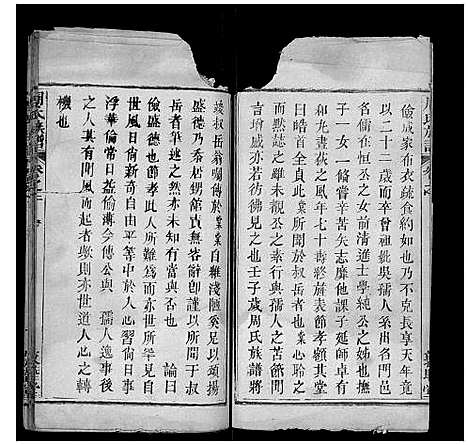 儉成家布衣疏食約如也乃不克長享天年竟
以二十二歲而卒曾祖妣吳孺人系出名門邑
名儒在恒公之女前清進士學純公之姊也撫
子一女一備嘗辛苦矢志靡他課子延師卓有
和丸晝荻之風年七十壽終厥表節孝顏其堂
曰皓首全貞此業所於叔岳者業心聆之
而默誌之雖未親公之素行與孺人之苦節聞
言增感亦若彷彿見之也壬子歲周氏族譜將
竣叔岳問序於業業自維淺陋奚足以頌揚
盛德乃忝居甥館責無容辭卽謹以所聞于叔
岳者筆述之然亦未知有當與否也 論曰
儉盛德也節孝此人所難爲而亦世所罕見自
世日益開新奇自由平等中於人心習尚日事
浮華倫常日益薄今傳公與 孺人逸事後
之人其有聞風而起者歟則亦世道人心之轉
機也
周氏族譜